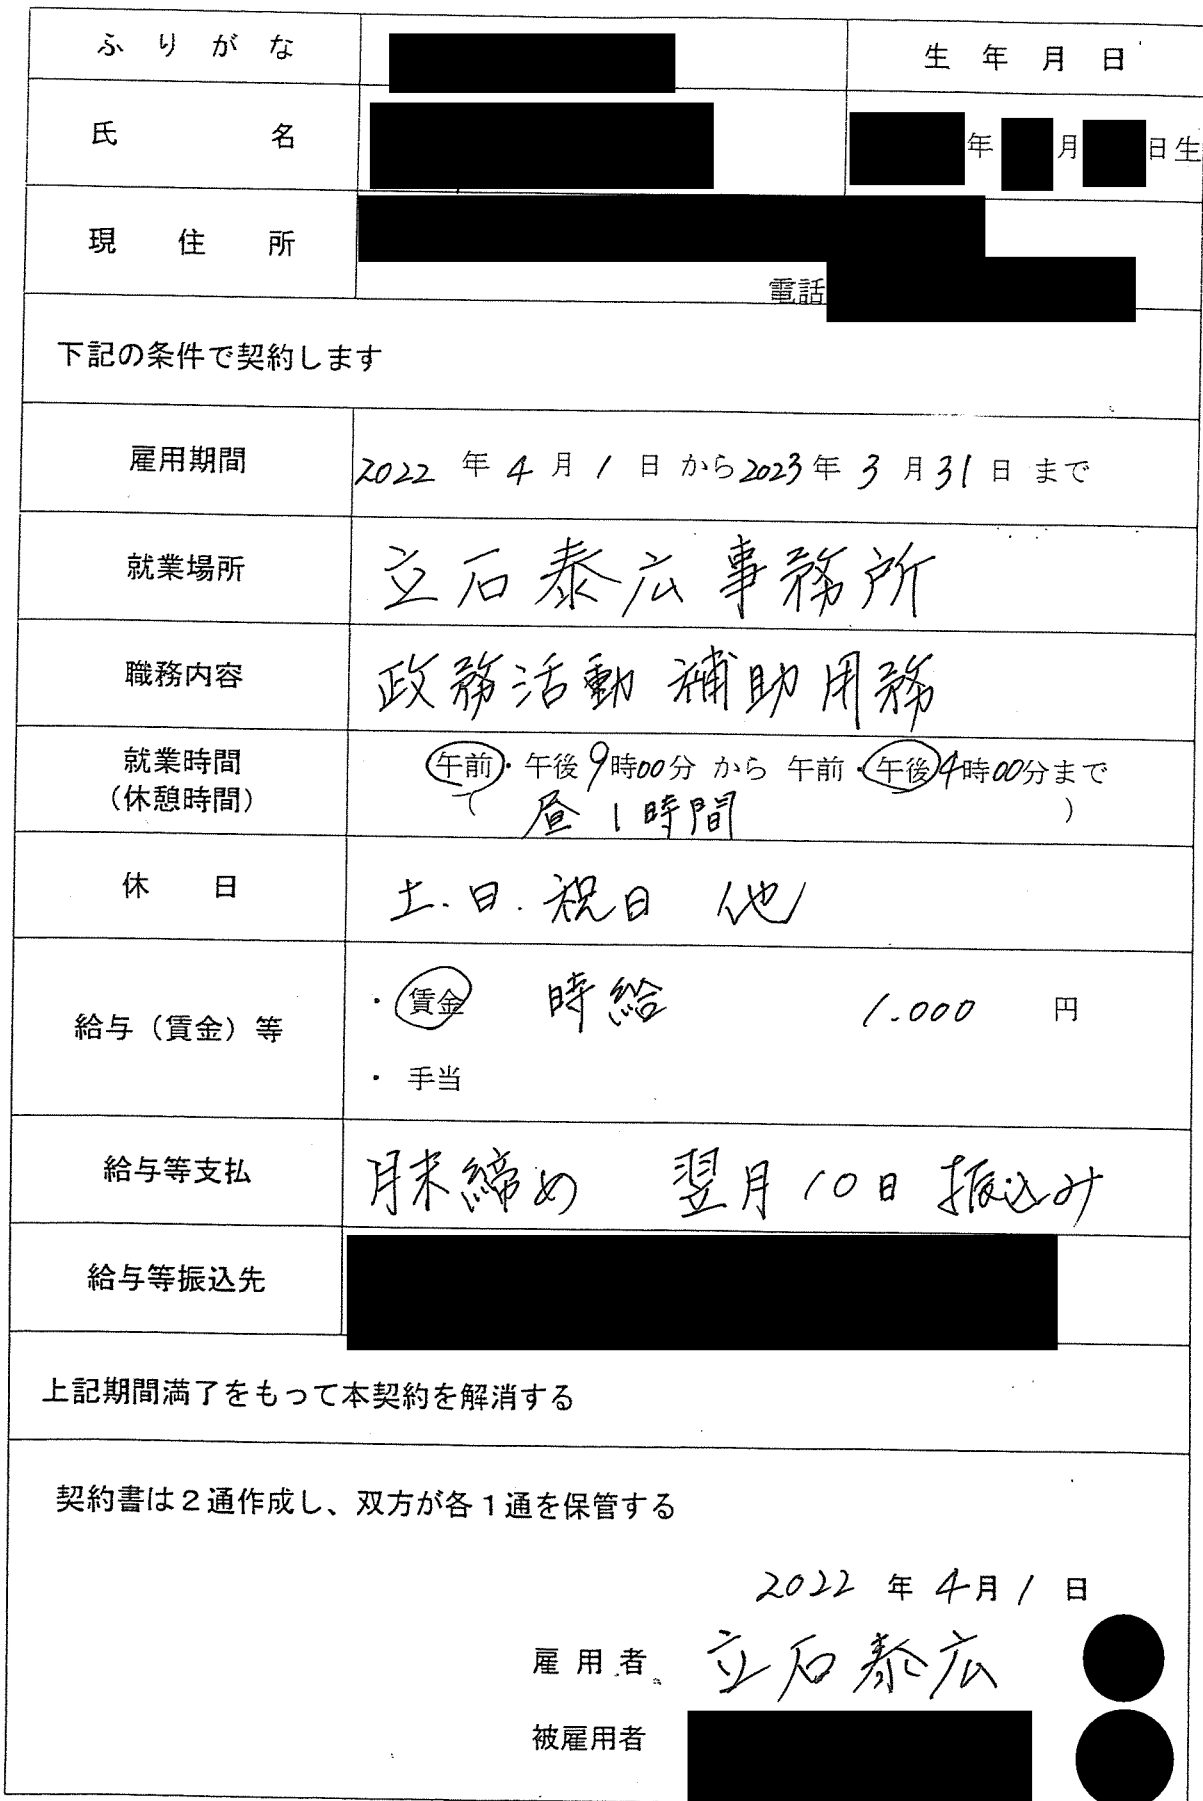 ふりがな
生年月日
氏名
年 月 日生
現住所
電話
下記の条件で契約します
雇用期間
2022 年 4 月 1 日 から 2023 年 3 月 31 日 まで
就業場所
立石泰広事務所
職務内容
政務活動 補助用務
就業時間
(休憩時間)
午前・午後 9時00分 から 午前・午後 4時00分まで
( 昼 1時間 )
休日
土.日.祝日 他
給与(賃金)等
・ 賃金 時給 1.000 円
・ 手当
給与等支払
月末締め 翌月10日 振込み
給与等振込先
上記期間満了をもって本契約を解消する
契約書は2通作成し、双方が各1通を保管する
2022 年 4月 1 日
雇用者 立石泰広
被雇用者